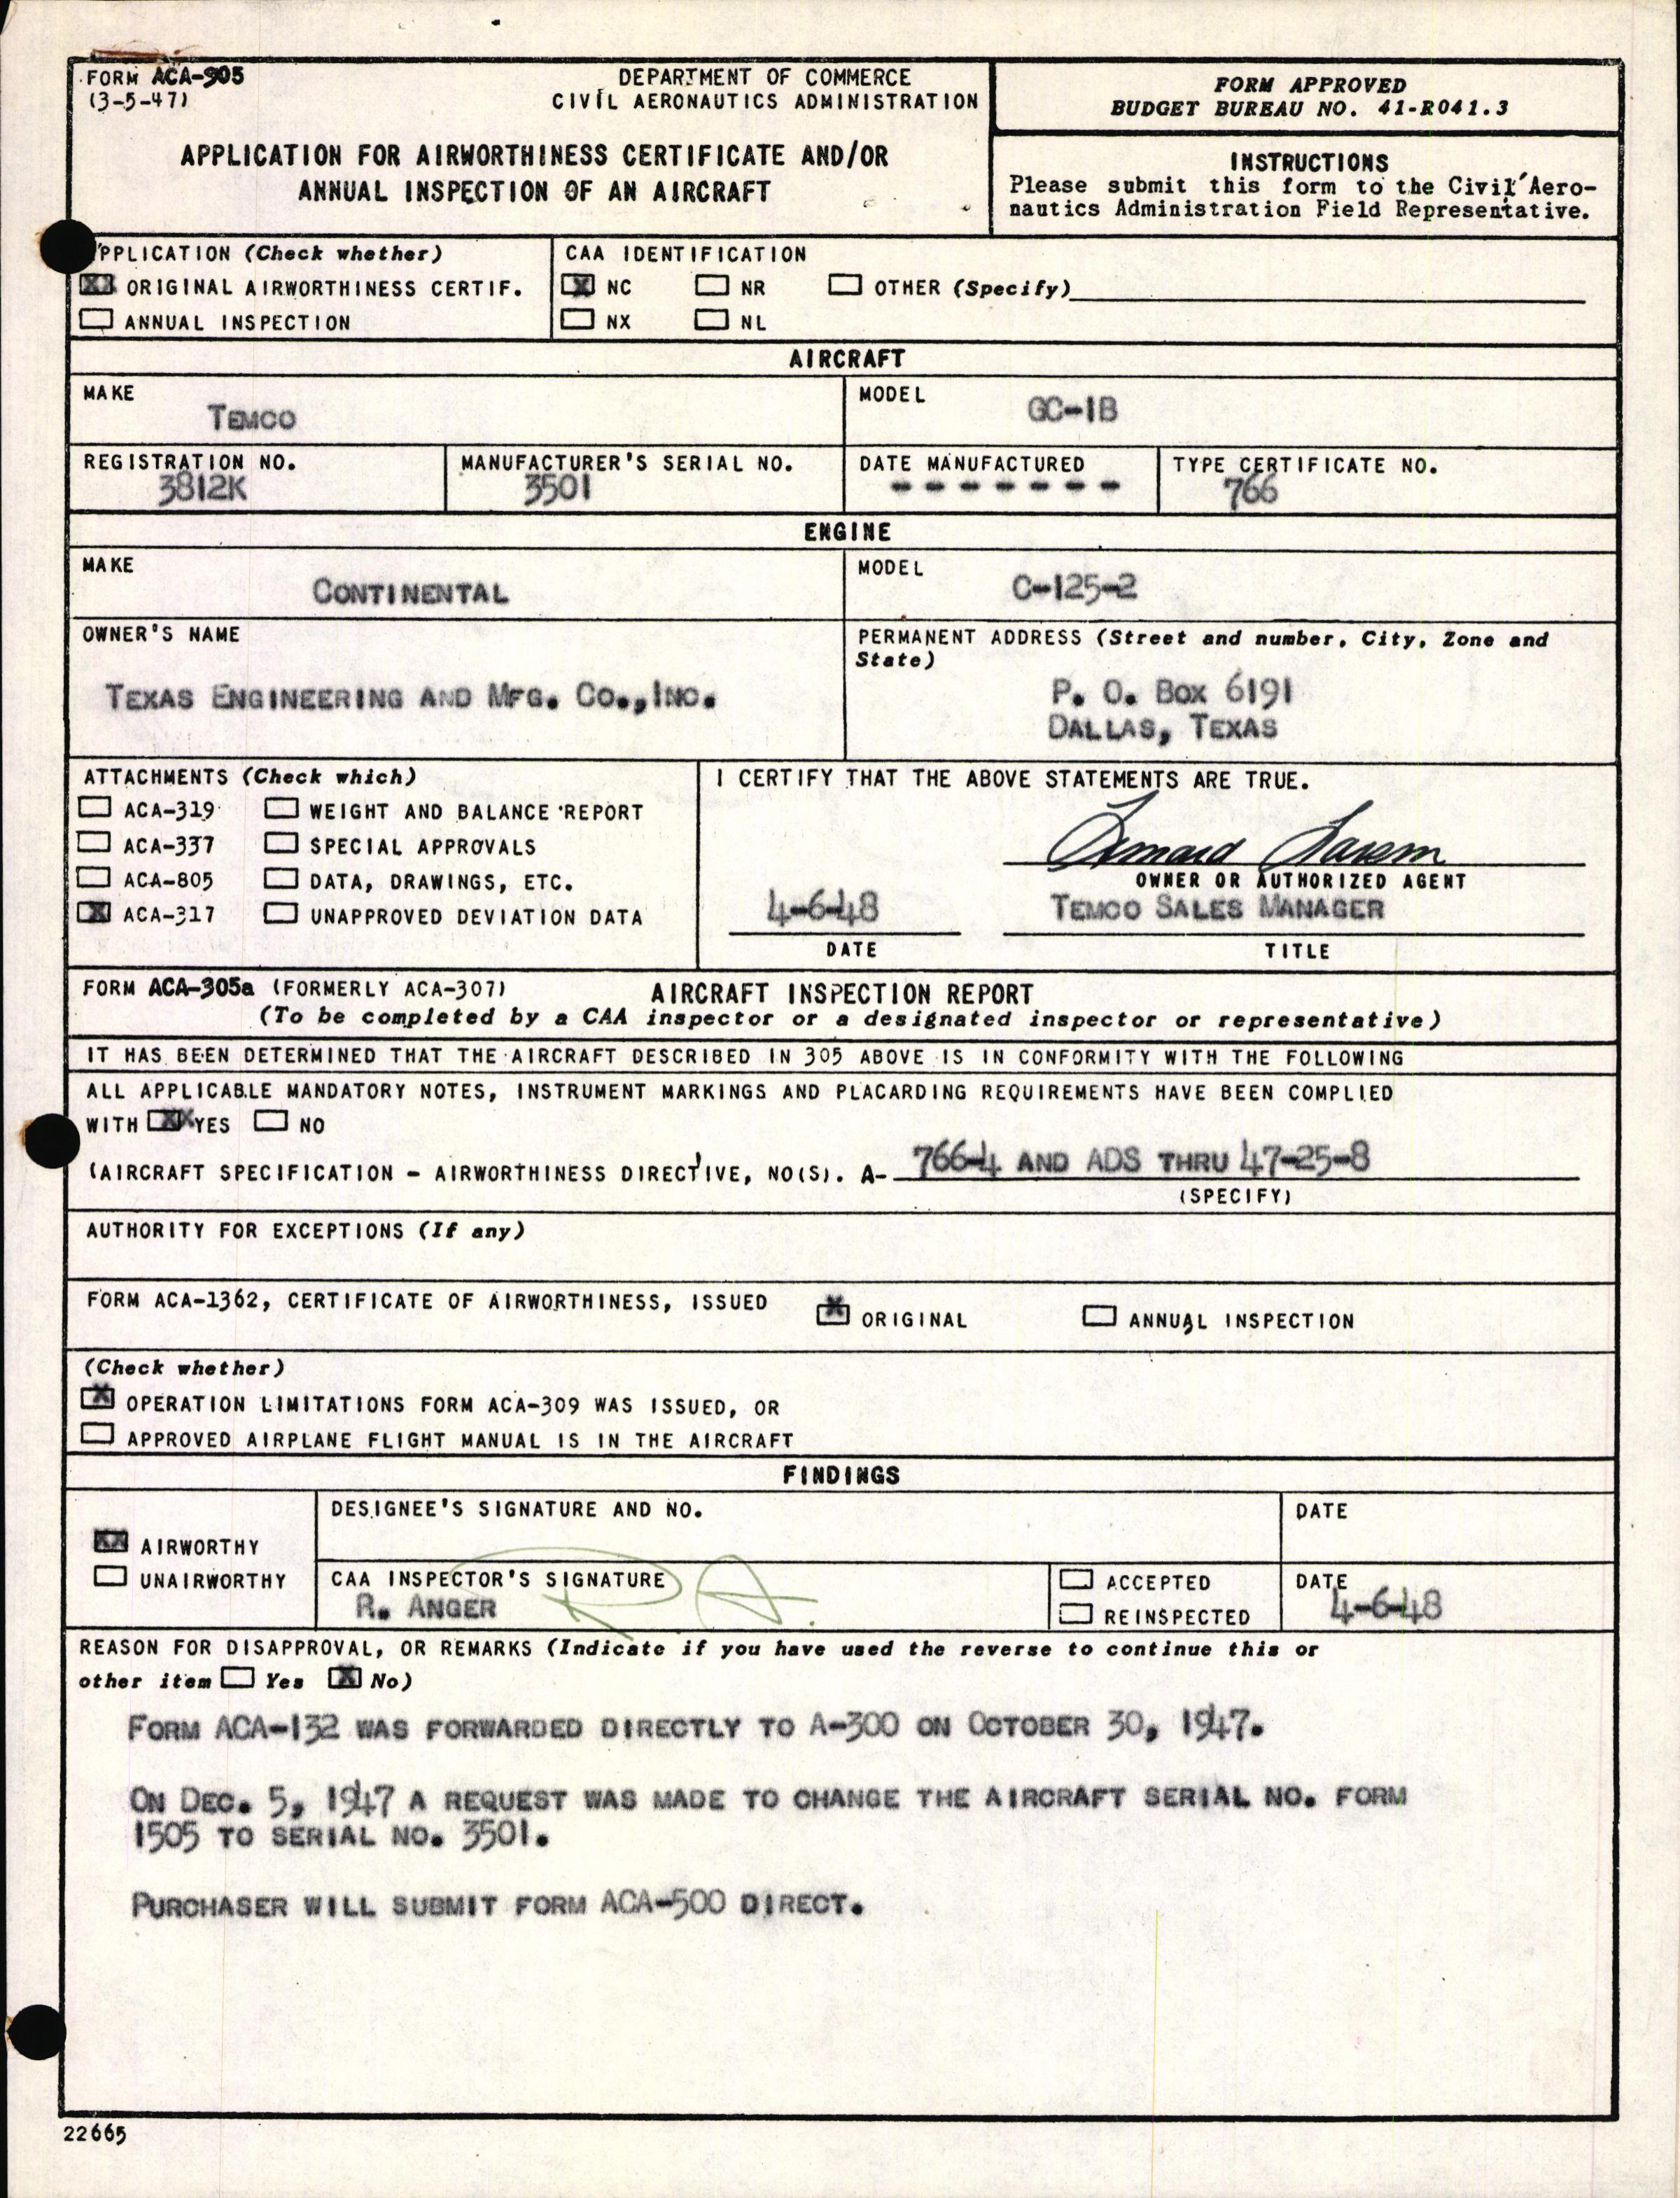 FORM ACA-305
(3-5-47)
DEPARTMENT OF COMMERCE
CIVIL AERONAUTICS ADMINISTRATION
APPLICATION FOR AIRWORTHINESS CERTIFICATE AND/OR
ANNUAL INSPECTION OF AN AIRCRAFT
FORM APPROVED
BUDGET BUREAU NO. 41-R041.3
INSTRUCTIONS
Please submit this form to the Civil Aero-
nautics Administration Field Representative.
PPLICATION (Check whether)
XX ORIGINAL AIRWORTHINESS CERTIF.
ANNUAL INSPECTION
CAA IDENTIFICATION
X NC NR OTHER (Specify)
NX NL
AIRCRAFT
MAKE
TEMCO
MODEL
GC-1B
REGISTRATION NO.
3812K
MANUFACTURER'S SERIAL NO.
3501
DATE MANUFACTURED
- - - - - - -
TYPE CERTIFICATE NO.
766
ENGINE
MAKE
CONTINENTAL
MODEL
C-125-2
OWNER'S NAME
TEXAS ENGINEERING AND MFG. CO., INC.
PERMANENT ADDRESS (Street and number, City, Zone and
State)
P. O. BOX 6191
DALLAS, TEXAS
ATTACHMENTS (Check which)
ACA-319 WEIGHT AND BALANCE REPORT
ACA-337 SPECIAL APPROVALS
ACA-805 DATA, DRAWINGS, ETC.
X ACA-317 UNAPPROVED DEVIATION DATA
I CERTIFY THAT THE ABOVE STATEMENTS ARE TRUE.
OWNER OR AUTHORIZED AGENT
4-6-48
TEMCO SALES MANAGER
DATE
TITLE
FORM ACA-305a (FORMERLY ACA-307) AIRCRAFT INSPECTION REPORT
(To be completed by a CAA inspector or a designated inspector or representative)
IT HAS BEEN DETERMINED THAT THE AIRCRAFT DESCRIBED IN 305 ABOVE IS IN CONFORMITY WITH THE FOLLOWING
ALL APPLICABLE MANDATORY NOTES, INSTRUMENT MARKINGS AND PLACARDING REQUIREMENTS HAVE BEEN COMPLIED
WITH XX YES NO
(AIRCRAFT SPECIFICATION - AIRWORTHINESS DIRECTIVE, NO(S). A- 766-4 AND ADS THRU 47-25-8
(SPECIFY)
AUTHORITY FOR EXCEPTIONS (If any)
FORM ACA-1362, CERTIFICATE OF AIRWORTHINESS, ISSUED X ORIGINAL ANNUAL INSPECTION
(Check whether)
X OPERATION LIMITATIONS FORM ACA-309 WAS ISSUED, OR
APPROVED AIRPLANE FLIGHT MANUAL IS IN THE AIRCRAFT
FINDINGS
XX AIRWORTHY
UNAIRWORTHY
DESIGNEE'S SIGNATURE AND NO.
DATE
CAA INSPECTOR'S SIGNATURE
R. ANGER
RA.
ACCEPTED
REINSPECTED
DATE
4-6-48
REASON FOR DISAPPROVAL, OR REMARKS (Indicate if you have used the reverse to continue this or
other item Yes X No)
FORM ACA-132 WAS FORWARDED DIRECTLY TO A-300 ON OCTOBER 30, 1947.
ON DEC. 5, 1947 A REQUEST WAS MADE TO CHANGE THE AIRCRAFT SERIAL NO. FORM
1505 TO SERIAL NO. 3501.
PURCHASER WILL SUBMIT FORM ACA-500 DIRECT.
22665